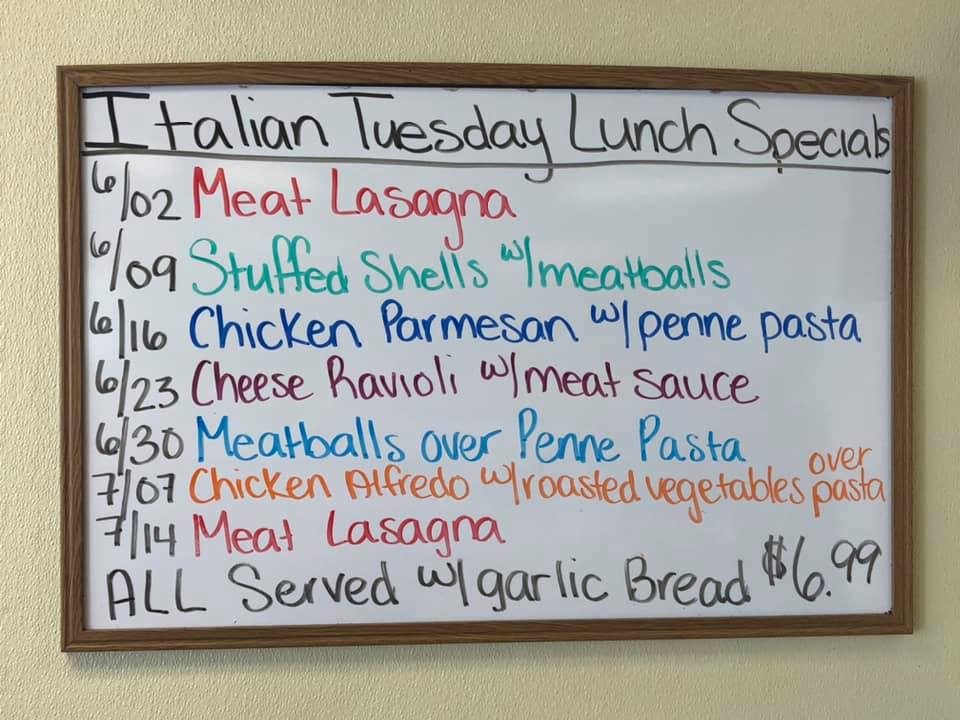 Italian Tuesday Lunch Specials
6/02 Meat Lasagna
6/09 Stuffed Shells w/meatballs
6/16 Chicken Parmesan w/penne pasta
6/23 Cheese Ravioli w/meat sauce
6/30 Meatballs over Penne Pasta
7/07 Chicken Alfredo w/roasted vegetables over pasta
7/14 Meat Lasagna
ALL Served w/garlic Bread $6.99